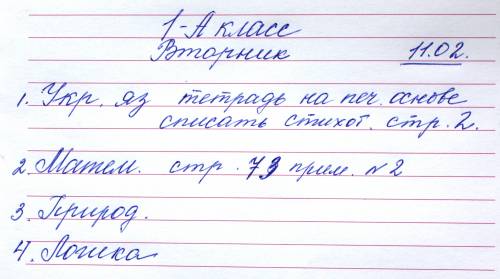 1-А класс
Вторник 11.02.
1. Укр. яз тетрадь на печ. основе
списать стихот. стр. 2.
2 Матем. стр. 73 прим. №2
3. Природ.
4. Логика